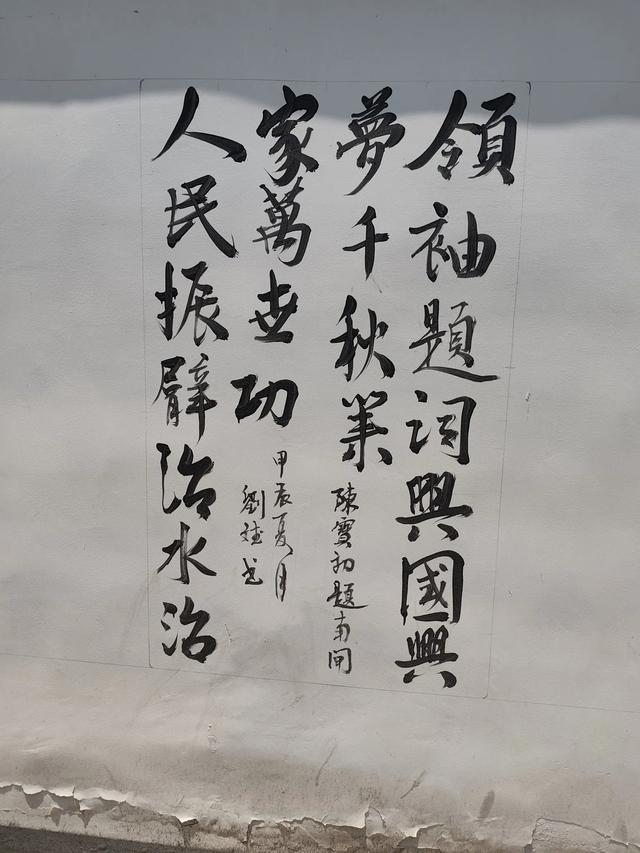 領袖題詞興國興
夢千秋業
陳初題南
人民振臂治水治
家萬世功
甲辰夏月
劉書